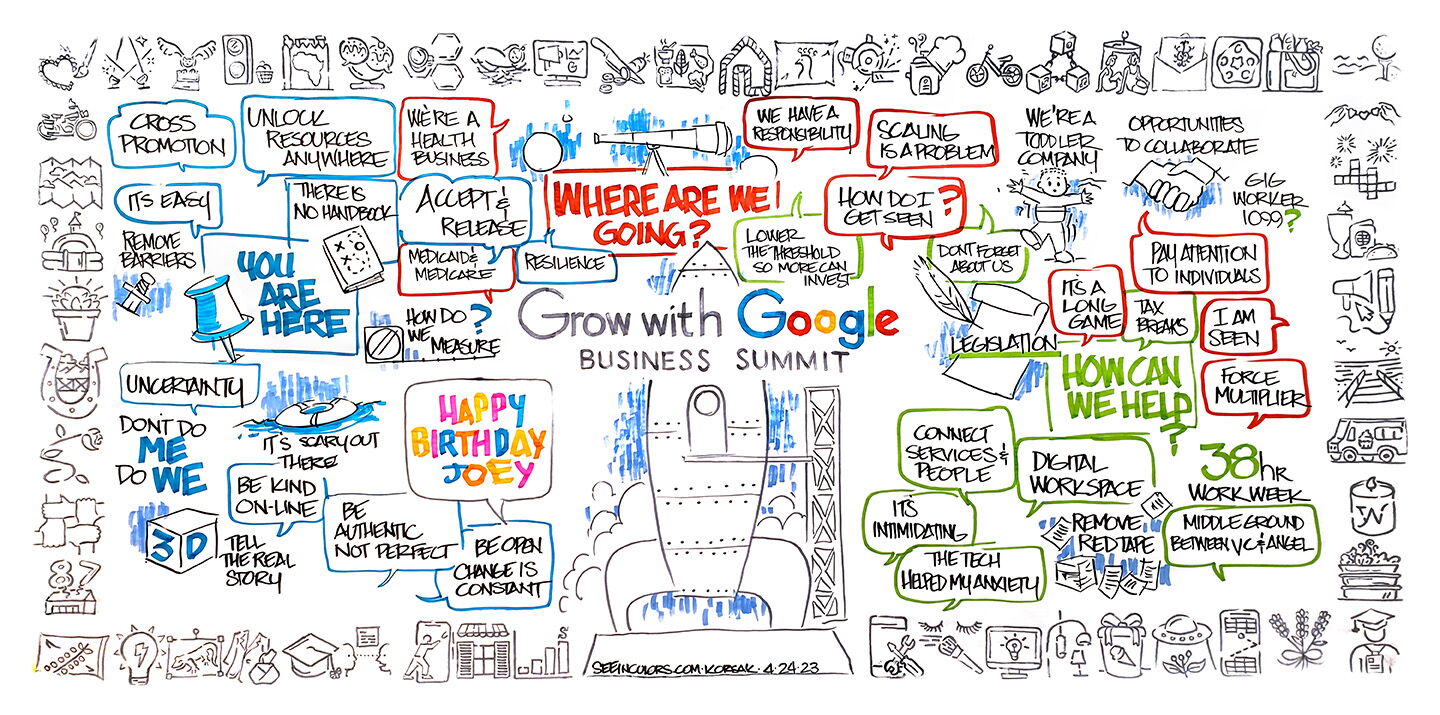 CROSS
PROMOTION
UNLOCK
RESOURCES
ANYWHERE
WE'RE A
HEALTH
BUSINESS
IT'S EASY
THERE IS
NO HANDBOOK
ACCEPT &
RELEASE
REMOVE
BARRIERS
MEDICAID &
MEDICARE
RESILIENCE
YOU
ARE
HERE
HOW DO
WE
MEASURE
?
WHERE ARE WE
GOING?
WE HAVE A
RESPONSIBILITY
SCALING
IS A PROBLEM
HOW DO I
GET SEEN
?
LOWER
THE THRESHOLD
SO MORE CAN
INVEST
DON'T FORGET
ABOUT US
WE'RE A
TODDLER
COMPANY
OPPORTUNITIES
TO COLLABORATE
GIG
WORKER
1099?
PAY ATTENTION
TO INDIVIDUALS
IT'S A
LONG
GAME
TAX
BREAKS
I AM
SEEN
LEGISLATION
FORCE
MULTIPLIER
HOW CAN
WE HELP
?
Grow with Google
BUSINESS SUMMIT
UNCERTAINTY
DON'T DO
ME
DO WE
IT'S SCARY OUT
THERE!
HAPPY
BIRTHDAY
JOEY
BE KIND
ON-LINE
BE
AUTHENTIC
NOT PERFECT
BE OPEN
CHANGE IS
CONSTANT
3D
TELL
THE REAL
STORY
CONNECT
SERVICES &
PEOPLE
DIGITAL
WORKSPACE
38hr
WORK WEEK
IT'S
INTIMIDATING
REMOVE
RED TAPE
MIDDLE GROUND
BETWEEN VC & ANGEL
THE TECH
HELPED MY ANXIETY
87
SEEINCOLORS.COM·KORSAK·4·24·23